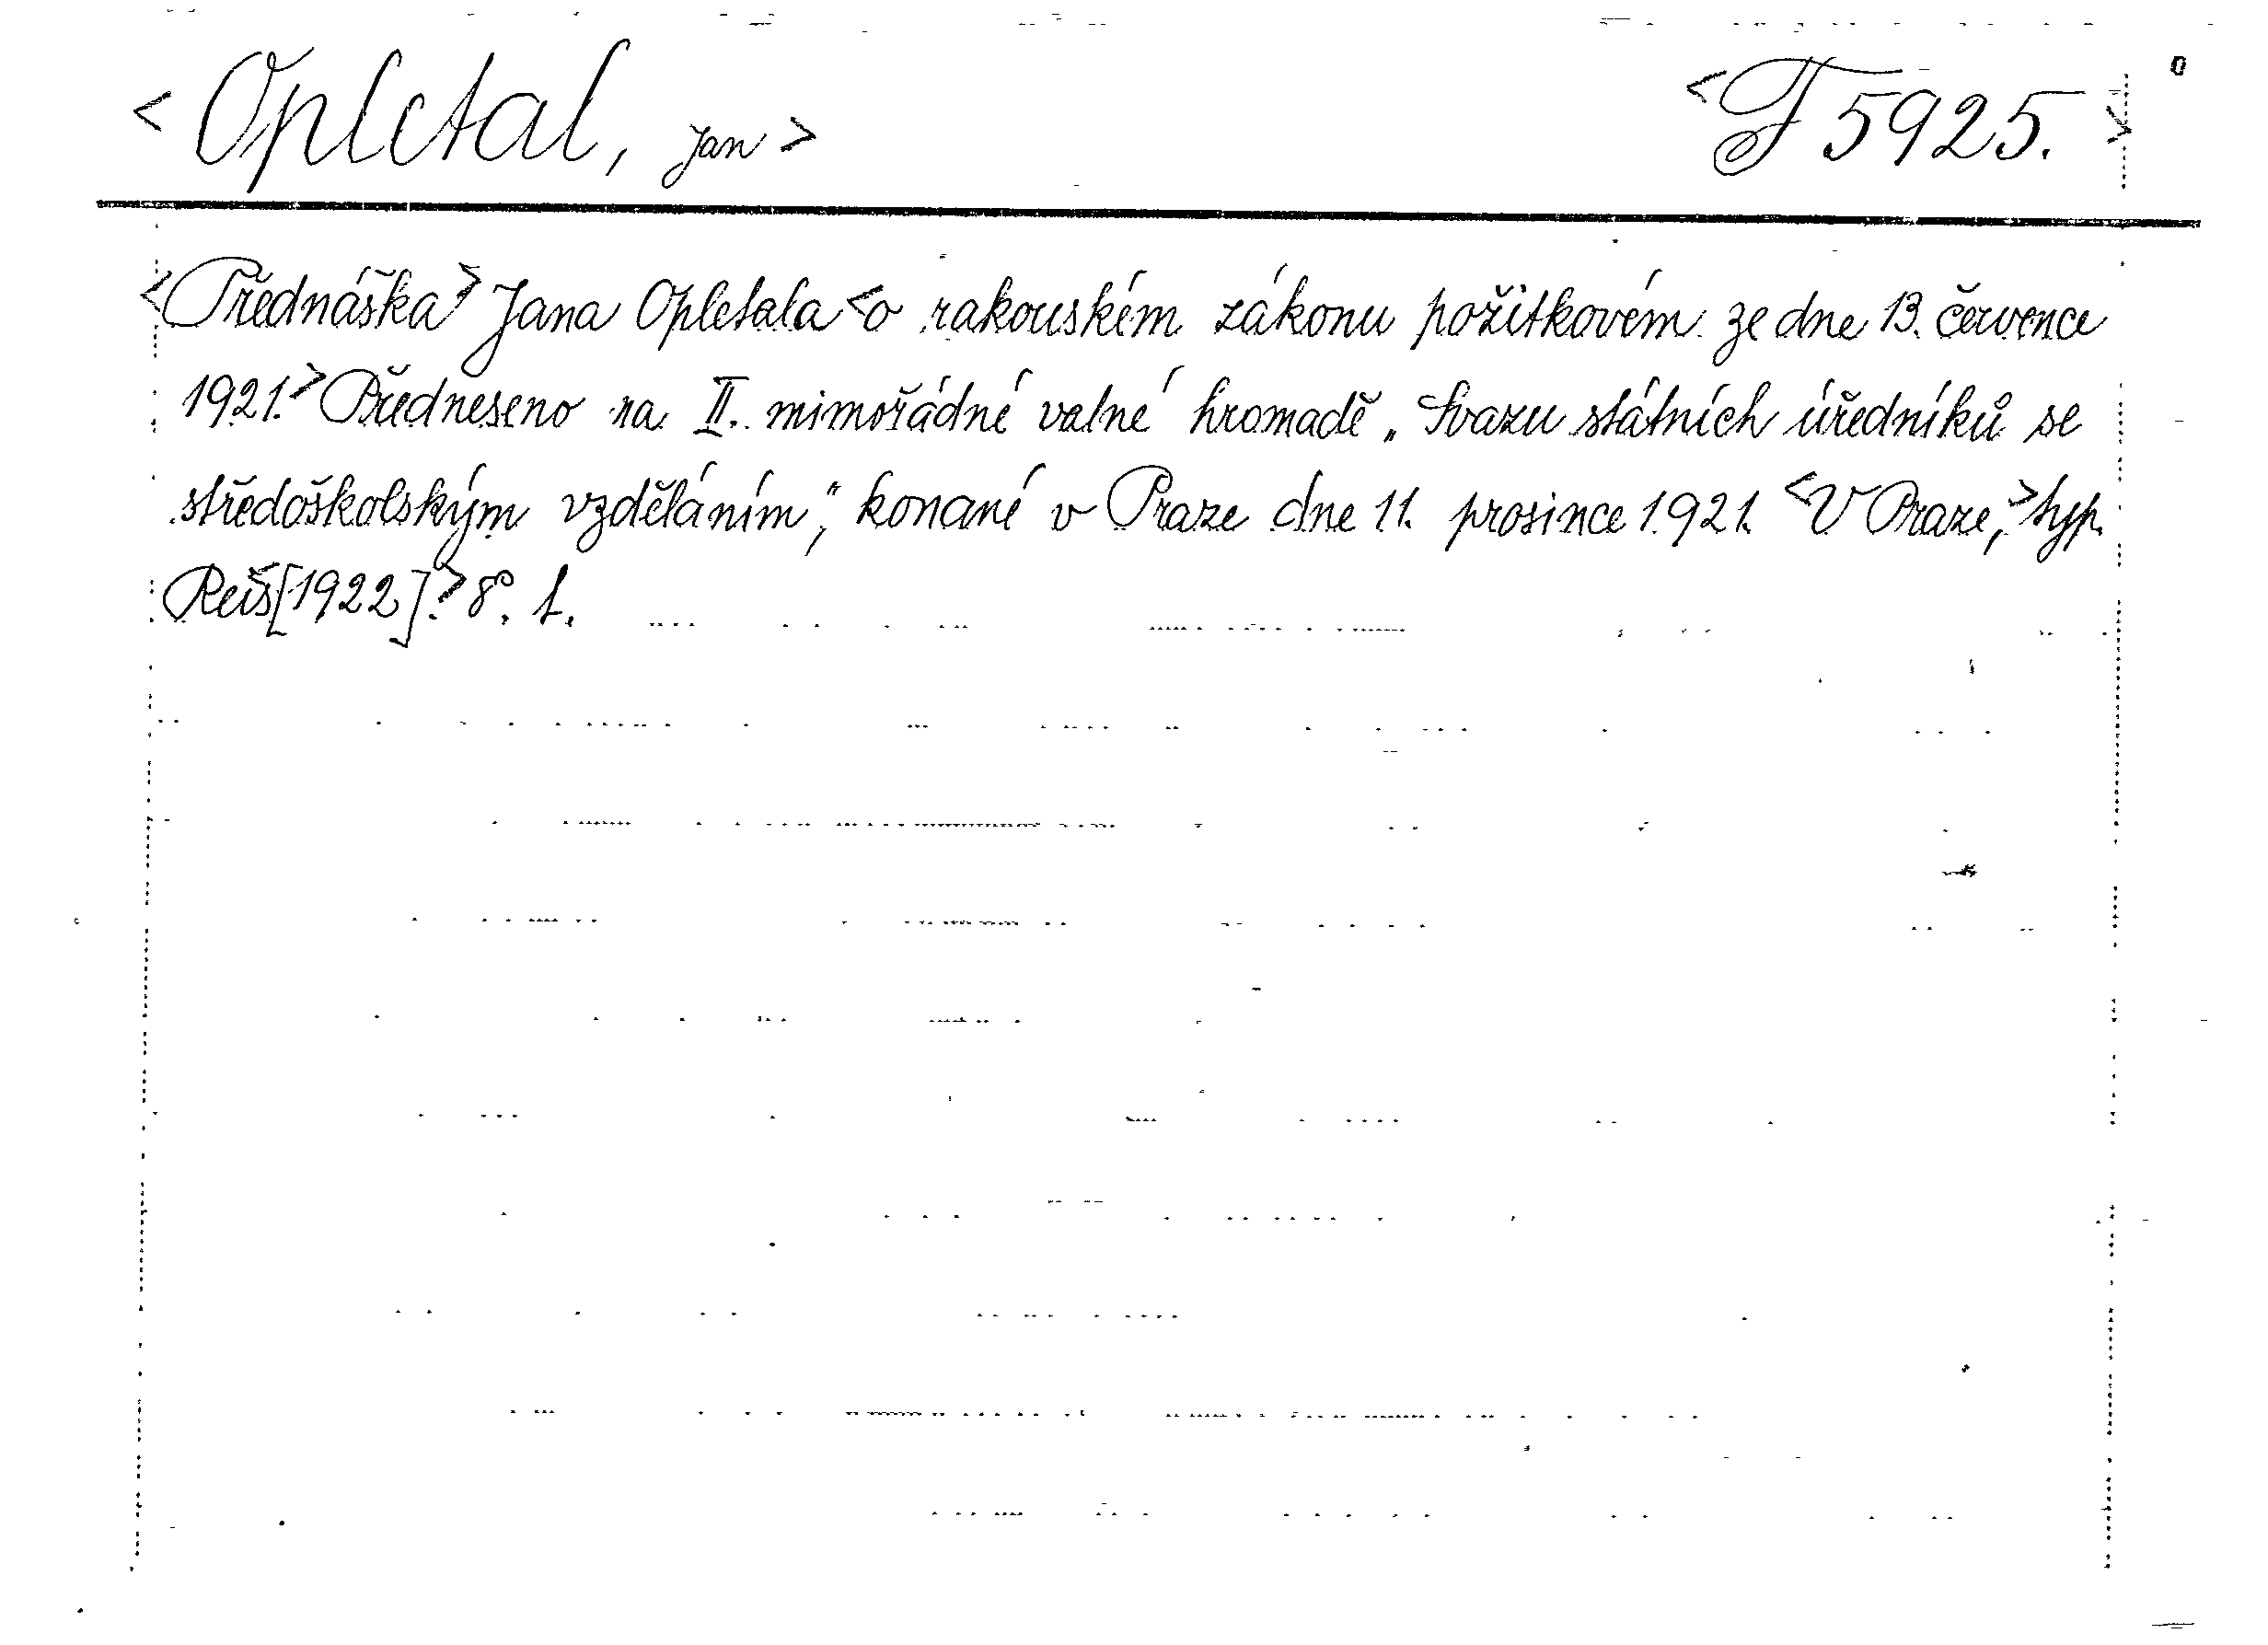 <Opletal, Jan>
<F 5925.>
<Přednáška> Jana Opletala <o rakouském zákonu požitkovém ze dne 13. července
1921.> Předneseno na II. mimořádné valné hromadě „Svazu státních úředníků se
středoškolským vzděláním“, konané v Praze dne 11. prosince 1921. <V Praze,> typ.
Reiš [1922].> 8°. f.